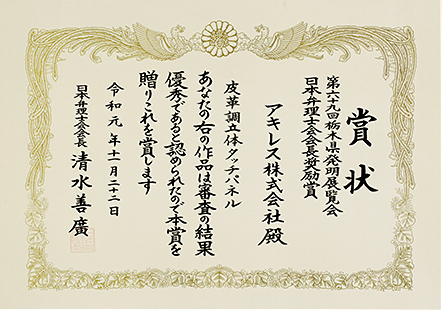 賞状
第六十九回栃木県発明展覧会
日本弁理士会会長奨励賞
アキレス株式会社殿
皮革調立体タッチパネル
あなたの右の作品は審査の結果
優秀であると認められたので本賞を
贈りこれを賞します
令和元年十一月二十二日
日本弁理士会会長 清水善廣